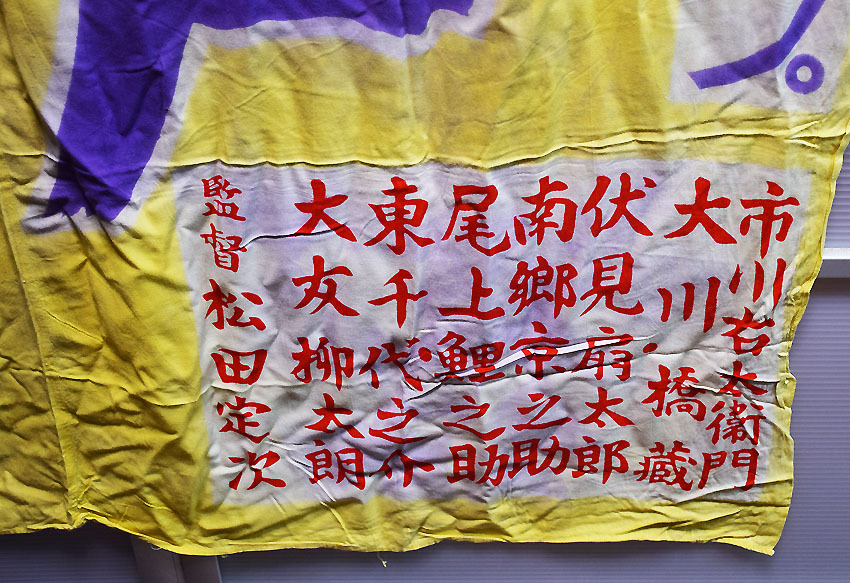 市川右太衛門
大川・橋蔵
伏見扇太郎
南郷京之助
尾上鯉之助
東千代之介
大友柳太朗
監督松田定次